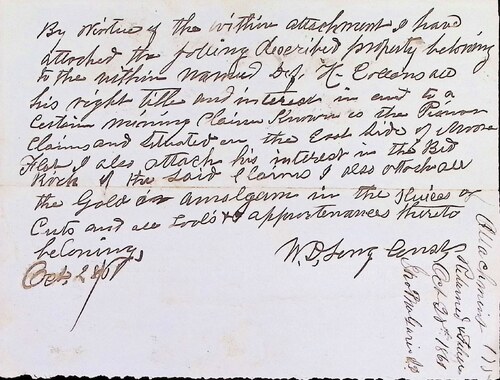 By virtue of the within attachment I have
attached the folling described property belonging
to the within named Def. H. Collins all
his right title and interest in and to a
Certain mining Claim Known as the
Claims and situated on the East side of Moore
Flat I also attach his interest in the Bed
Rock of the said Claims I also attach all
the Gold or amalgam in the Sluices or
Cuts and all tools & appertenances thereto
belonging
Oct. 28
W. D. Long Const
Attachment
Returned & filed
Oct 28th 1861